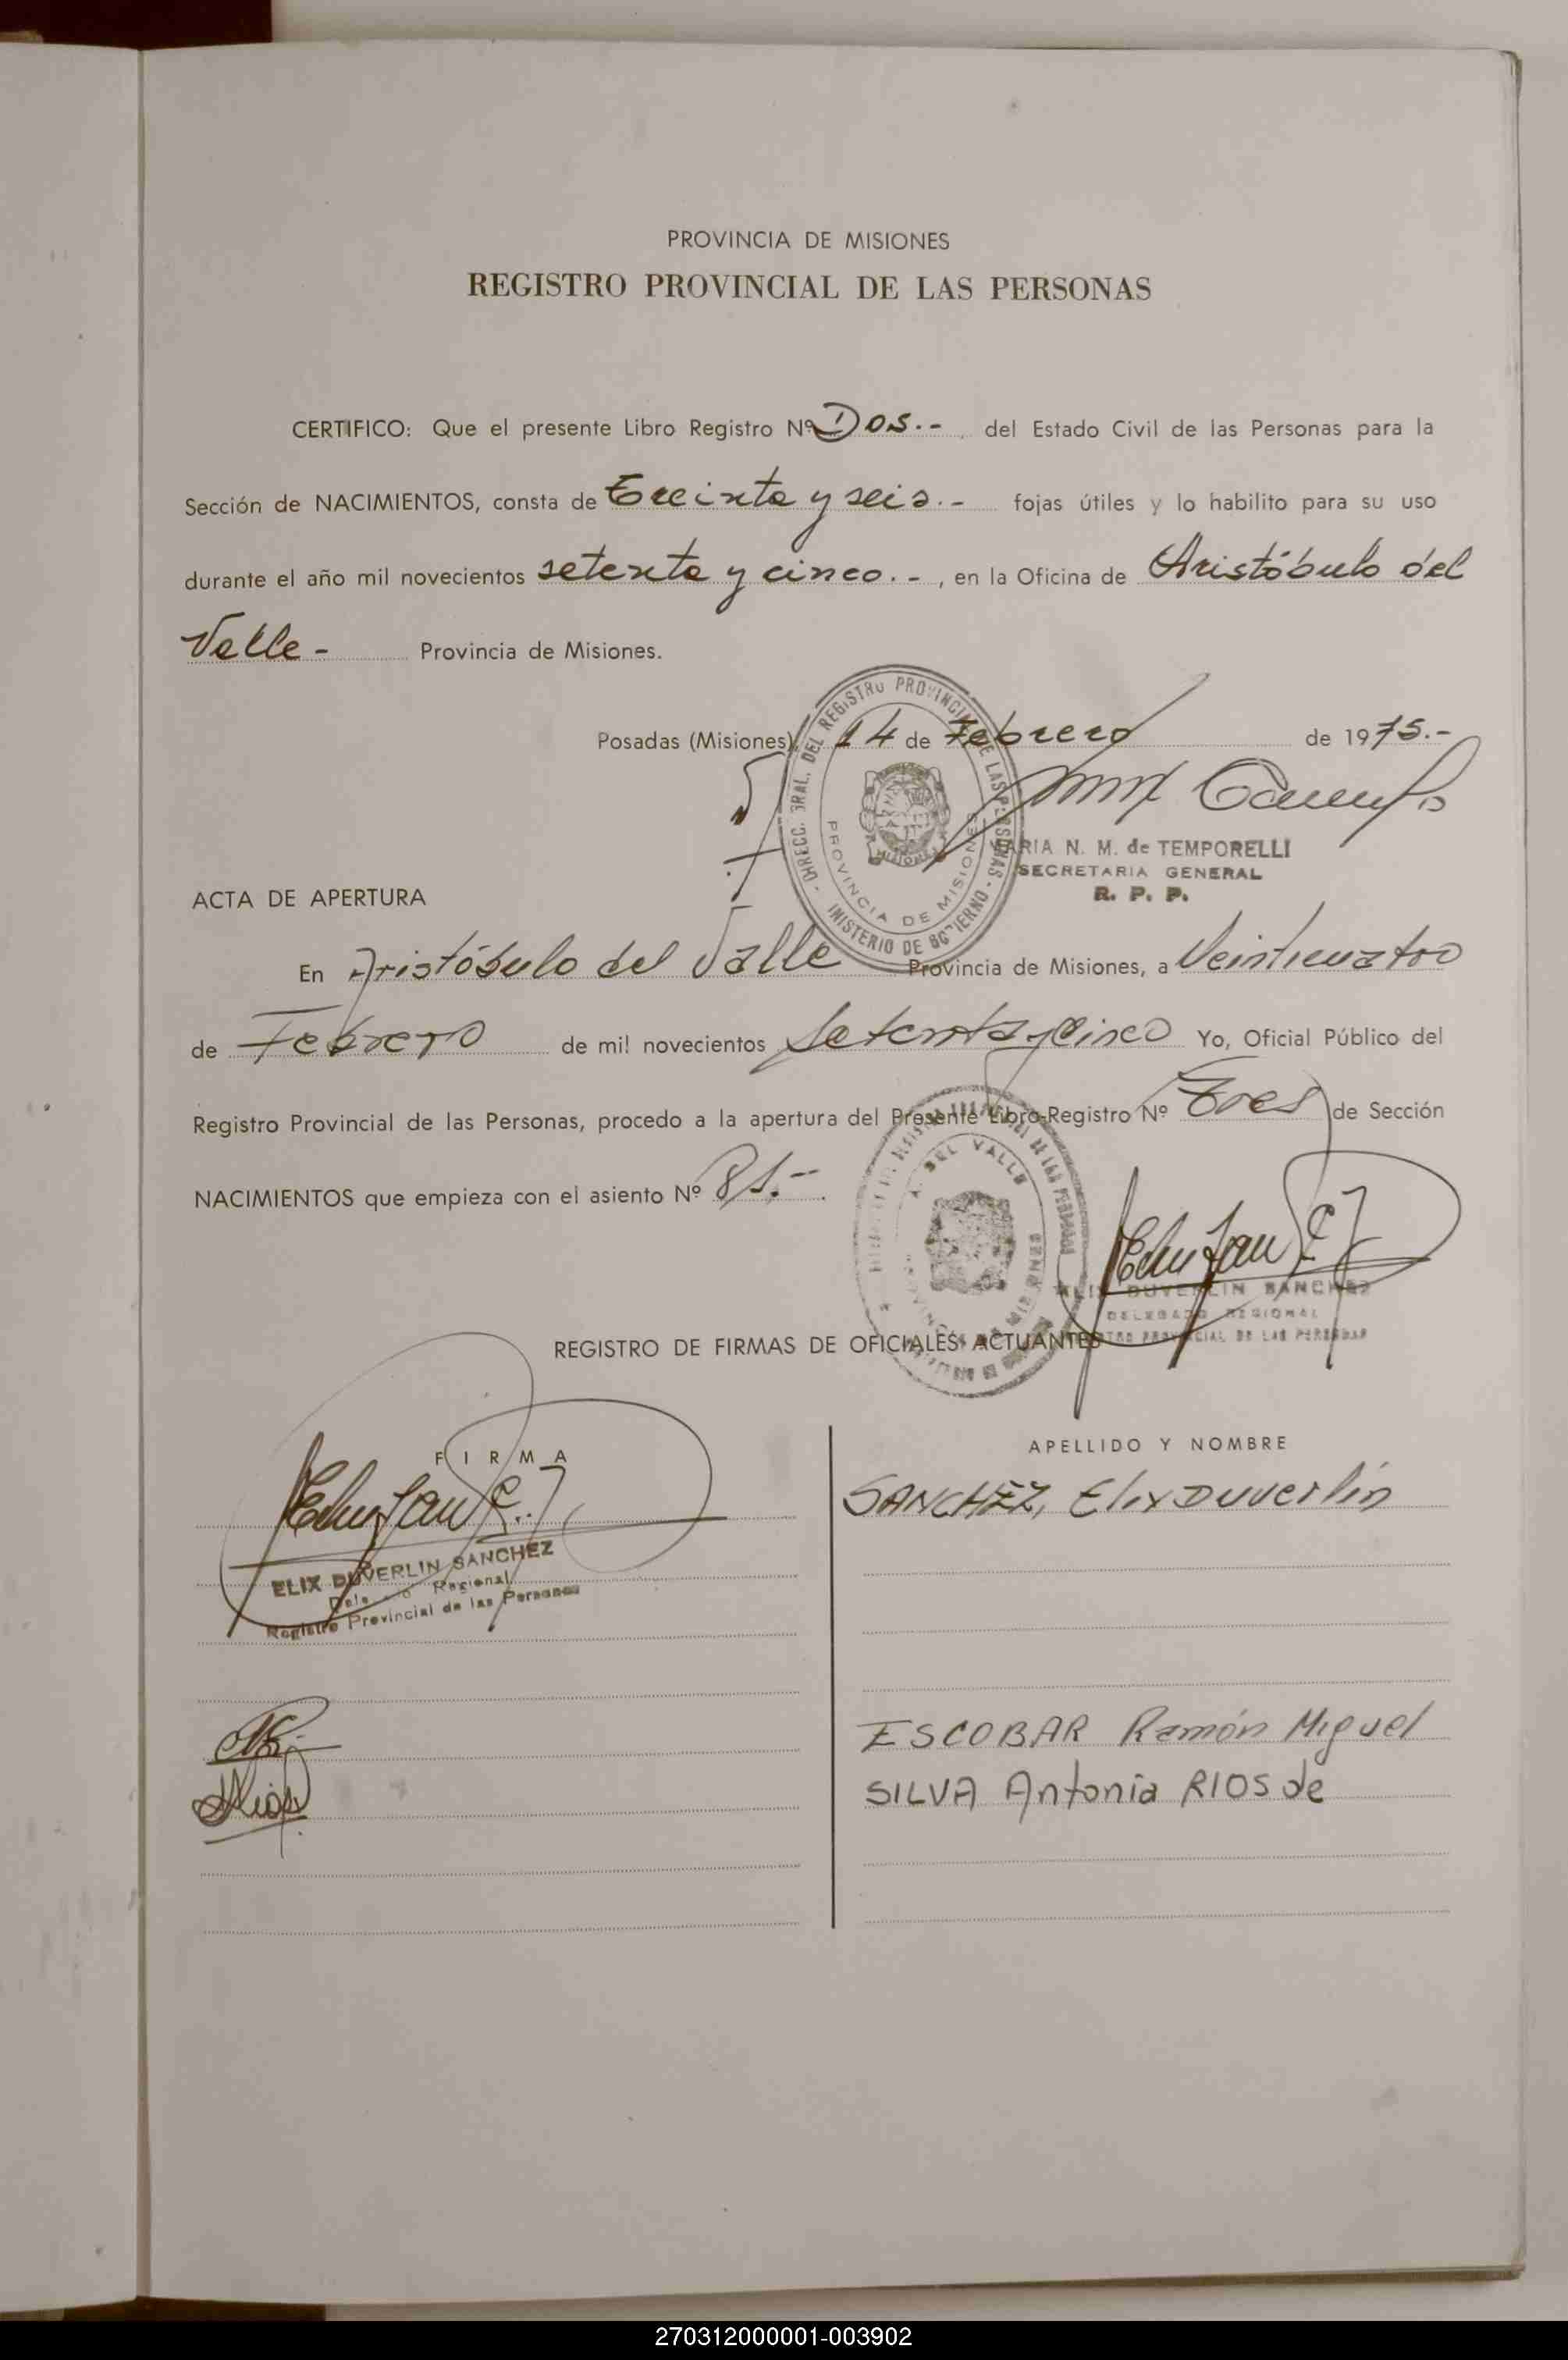 PROVINCIA DE MISIONES
REGISTRO PROVINCIAL DE LAS PERSONAS
CERTIFICO: Que el presente Libro Registro Nº Dos.- del Estado Civil de las Personas para la
Sección de NACIMIENTOS, consta de Treinta y seis.- fojas útiles y lo habilito para su uso
durante el año mil novecientos setenta y cinco.-, en la Oficina de Aristóbulo del
Valle - Provincia de Misiones.
Posadas (Misiones), 14 de Febrero de 1975.-
DIRECC. GRAL. DEL REGISTRO PROVINCIAL DE LAS PERSONAS - MINISTERIO DE GOBIERNO -
PROVINCIA DE MISIONES
MARIA N. M. de TEMPORELLI
SECRETARIA GENERAL
R. P. P.
ACTA DE APERTURA
En Aristóbulo del Valle Provincia de Misiones, a Veinticuatro
de Febrero de mil novecientos Setenta y Cinco Yo, Oficial Público del
Registro Provincial de las Personas, procedo a la apertura del Presente Libro-Registro Nº Tres de Sección
NACIMIENTOS que empieza con el asiento Nº 81.--.
A. DEL VALLE
ELIX DUVERLIN SANCHEZ
DELEGADO REGIONAL
REGISTRO PROVINCIAL DE LAS PERSONAS
REGISTRO DE FIRMAS DE OFICIALES ACTUANTES
FIRMA
APELLIDO Y NOMBRE
SANCHEZ, Elix Duverlin
ELIX DUVERLIN SANCHEZ
Delegado Regional
Registro Provincial de las Personas
ESCOBAR Ramón Miguel
Rios
SILVA Antonia RIOS de
270312000001-003902